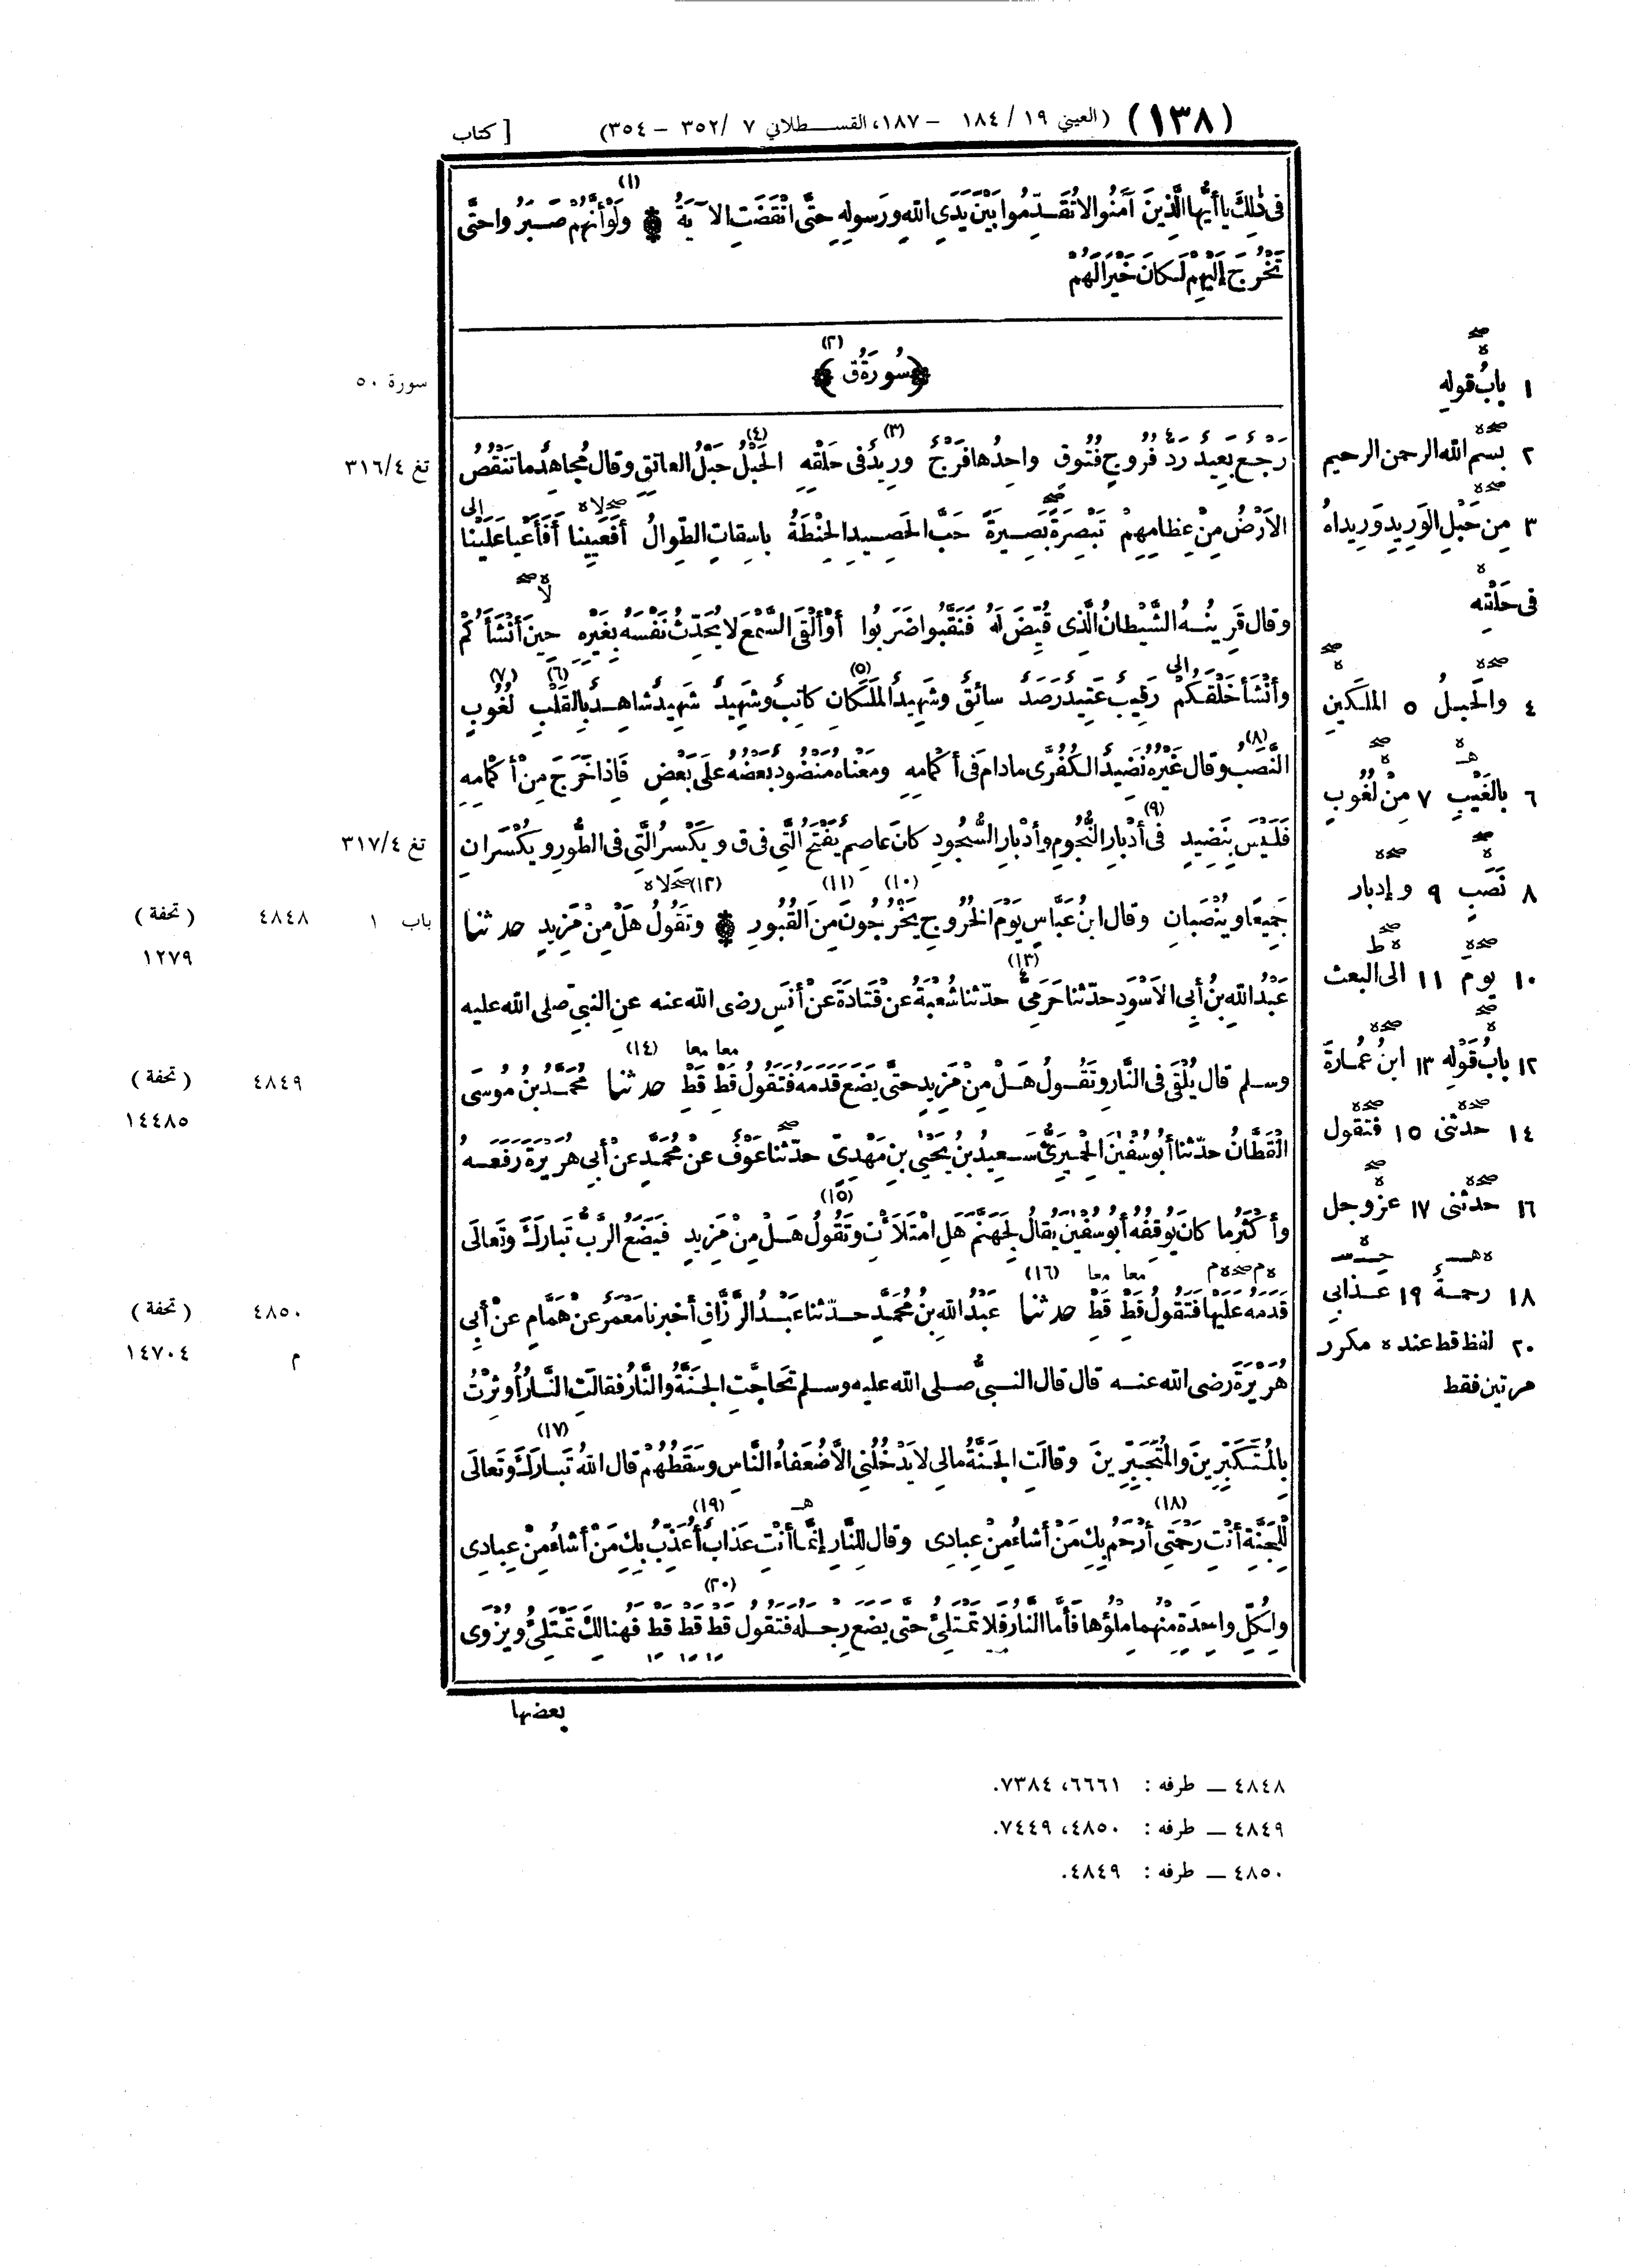 (١٣٨) (العيني ١٩/ ١٨٤ – ١٨٧، القسطلاني ٧ /٣٥٢ – ٣٥٤) [ كتاب
فِى ذٰلِكَ يا أَيُّها الَّذِينَ آمَنُوا لا تُقَدِّمُوا بَيْنَ يَدَىِ اللهِ ورَسولِهِ حتَّى انْقَضَتِ الآيَةُ (١) ولَوْ أَنَّهُمْ صَبَرُوا حتَّى
تَخْرُجَ إِلَيْهِمْ لَكانَ خَيْرًا لَهُمْ
(٢) سُورَةُ ق
سورة ٥٠
رَجْعٌ بَعِيدٌ رَدٌّ فُرُوجٍ فُتُوقٍ واحِدُها فَرْجٌ (٣) ورِيدٌ فى حَلْقِهِ (٤) الحَبْلُ حَبْلُ العاتِقِ وقال مُجاهِدٌ ما تَنْقُصُ
تغ ٣١٦/٤
الأَرْضُ مِنْ عِظامِهِمْ تَبْصِرَةً بَصِيرَةً حَبَّ الحَصِيدِ الحِنْطَةُ باسِقاتٍ الطِّوالُ أَفَعَيِينا أَفَأَعْيا عَلَيْنا
وقال قَرِينُهُ الشَّيْطانُ الَّذِى قُيِّضَ لَهُ فَنَقَّبُوا ضَرَبُوا أَوْ أَلْقَى السَّمْعَ لا يُحَدِّثُ نَفْسَهُ بِغَيْرِهِ حِينَ أَنْشَأَكُمْ
وأَنْشَأَ خَلْقَكُمْ رَقِيبٌ عَتِيدٌ رَصَدٌ سائِقٌ وشَهِيدٌ (٥) المَلَكانِ كاتِبٌ وشَهِيدٌ شَهِيدٌ شاهِدٌ (٦) بِالقَلْبِ (٧) لُغُوبٍ
(٨) النَّصَبُ وقال غَيْرُهُ نَضِيدٌ الكُفُرَّى ما دامَ فى أَكْمامِهِ ومَعْناهُ مَنْضُودٌ بَعْضُهُ علَى بَعْضٍ فَإِذا خَرَجَ مِنْ أَكْمامِهِ
فَلَيْسَ بِنَضِيدٍ (٩) فى أَدْبارِ النُّجُومِ وأَدْبارِ السُّجُودِ كانَ عاصِمٌ يَفْتَحُ الَّتِى فى ق ويَكْسِرُ الَّتِى فى الطُّورِ ويُكْسَرانِ
تغ ٣١٧/٤
جَمِيعًا ويُنْصَبانِ وقال ابنُ عَبَّاسٍ (١٠) يَوْمَ الخُرُوجِ يَخْرُجُونَ (١١) مِنَ القُبُورِ (١٢) وتَقُولُ هَلْ مِنْ مَزِيدٍ حدثنا
باب ١ ٤٨٤٨ (تحفة) ١٢٧٩
عَبْدُ اللهِ بنُ أَبِى الأَسْوَدِ حدّثنا حَرَمِىٌّ (١٣) حدّثنا شُعْبَةُ عنْ قَتادَةَ عنْ أَنَسٍ رضى الله عنه عنِ النبىِّ صلى الله عليه
وسلم قال يُلْقَى فى النَّارِ وتَقُولُ هَلْ مِنْ مَزِيدٍ حتَّى يَضَعَ قَدَمَهُ فَتَقُولُ قَطْ قَطْ (١٤) حدثنا مُحَمَّدُ بنُ مُوسَى
٤٨٤٩ (تحفة) ١٤٤٨٥
القَطَّانُ حدّثنا أَبُو سُفْيٰنَ الحِمْيَرِىُّ سَعِيدُ بنُ يَحْيَى بنِ مَهْدِىٍّ حدّثنا عَوْفٌ عنْ مُحَمَّدٍ عنْ أَبِى هُرَيْرَةَ رَفَعَهُ
وأَكْثَرُ ما كانَ يُوقِفُهُ أَبُو سُفْيٰنَ يُقالُ لِجَهَنَّمَ هَلِ امْتَلَأْتِ (١٥) وتَقُولُ هَلْ مِنْ مَزِيدٍ فَيَضَعُ الرَّبُّ تَبارَكَ وتَعالَى
قَدَمَهُ عَلَيْها فَتَقُولُ قَطْ قَطْ (١٦) حدثنا عَبْدُ اللهِ بنُ مُحَمَّدٍ حدّثنا عَبْدُ الرَّزَّاقِ أخبرنا مَعْمَرٌ عنْ هَمَّامٍ عنْ أَبِى
٤٨٥٠ (تحفة) م ١٤٧٠٤
هُرَيْرَةَ رضى الله عنه قال قال النبىُّ صلى الله عليه وسلم تَحاجَّتِ الجَنَّةُ والنَّارُ فقالَتِ النَّارُ أُوثِرْتُ
بِالْمُتَكَبِّرِينَ والمُتَجَبِّرِينَ وقالَتِ الجَنَّةُ مالِى لا يَدْخُلُنِى إلَّا ضُعَفاءُ النَّاسِ وسَقَطُهُمْ قال اللهُ (١٧) تَبارَكَ وتَعالَى
لِلْجَنَّةِ أَنْتِ رَحْمَتِى (١٨) أَرْحَمُ بِكِ مَنْ أَشاءُ مِنْ عِبادِى وقال لِلنَّارِ إِنَّما أَنْتِ عَذابٌ (١٩) أُعَذِّبُ بِكِ مَنْ أَشاءُ مِنْ عِبادِى
ولِكُلِّ واحِدَةٍ مِنْهُما مِلْؤُها فَأَمَّا النَّارُ فَلا تَمْتَلِئُ حتَّى يَضَعَ رِجْلَهُ فَتَقُولُ قَطْ قَطْ قَطْ (٢٠) فَهُنالِكَ تَمْتَلِئُ ويُزْوَى
بعضها
١ بابُ قولِهِ
٢ بسم الله الرحمن الرحيم
٣ مِن حَبْلِ الوَرِيدِ وَرِيداهُ
فى حَلْقِه
٤ والحَبلُ ٥ الملَكَينِ
٦ بالغَيْبِ ٧ مِنْ لُغُوبٍ
٨ نَصَبٍ ٩ وإدبار
١٠ يومَ ١١ الى البعث
١٢ بابُ قَوْلِه ١٣ ابنُ عُمارةَ
١٤ حدثنى ١٥ فتقول
١٦ حدثنى ١٧ عزوجل
١٨ رحمةٌ ١٩ عذابى
٢٠ لفظ قط عند ه مكرر
مرتين فقط
٤٨٤٨ – طرفه : ٦٦٦١، ٧٣٨٤.
٤٨٤٩ – طرفه : ٤٨٥٠، ٧٤٤٩.
٤٨٥٠ – طرفه : ٤٨٤٩.